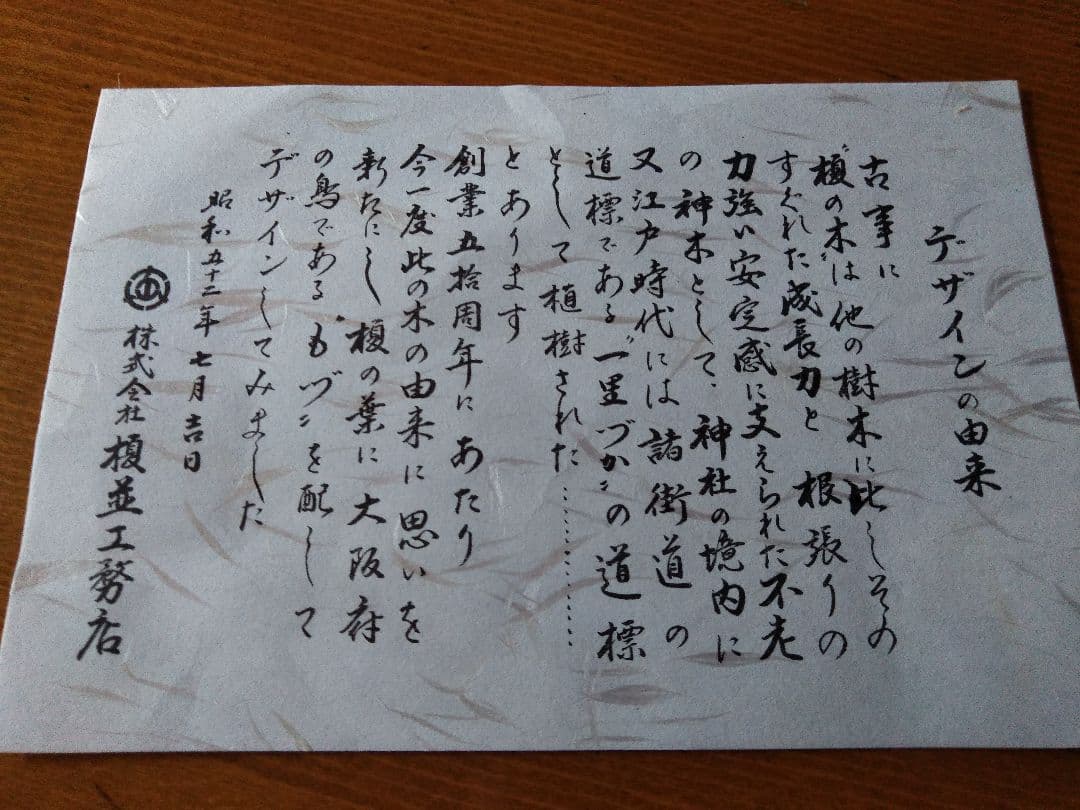 デザインの由来
古事に
“榎の木”は他の樹木に比しその
すぐれた成長力と 根張りの
力強い安定感に支えられた不老
の神木として、神社の境内に
又江戸時代には諸街道の
道標である“一里づか”の道標
として植樹された…………
とあります
創業五拾周年に あたり
今一度此の木の由来に思いを
新たにし 榎の葉に大阪府
の鳥である“もづ”を配して
デザインしてみました
昭和五十二年七月吉日
株式会社 榎並工務店